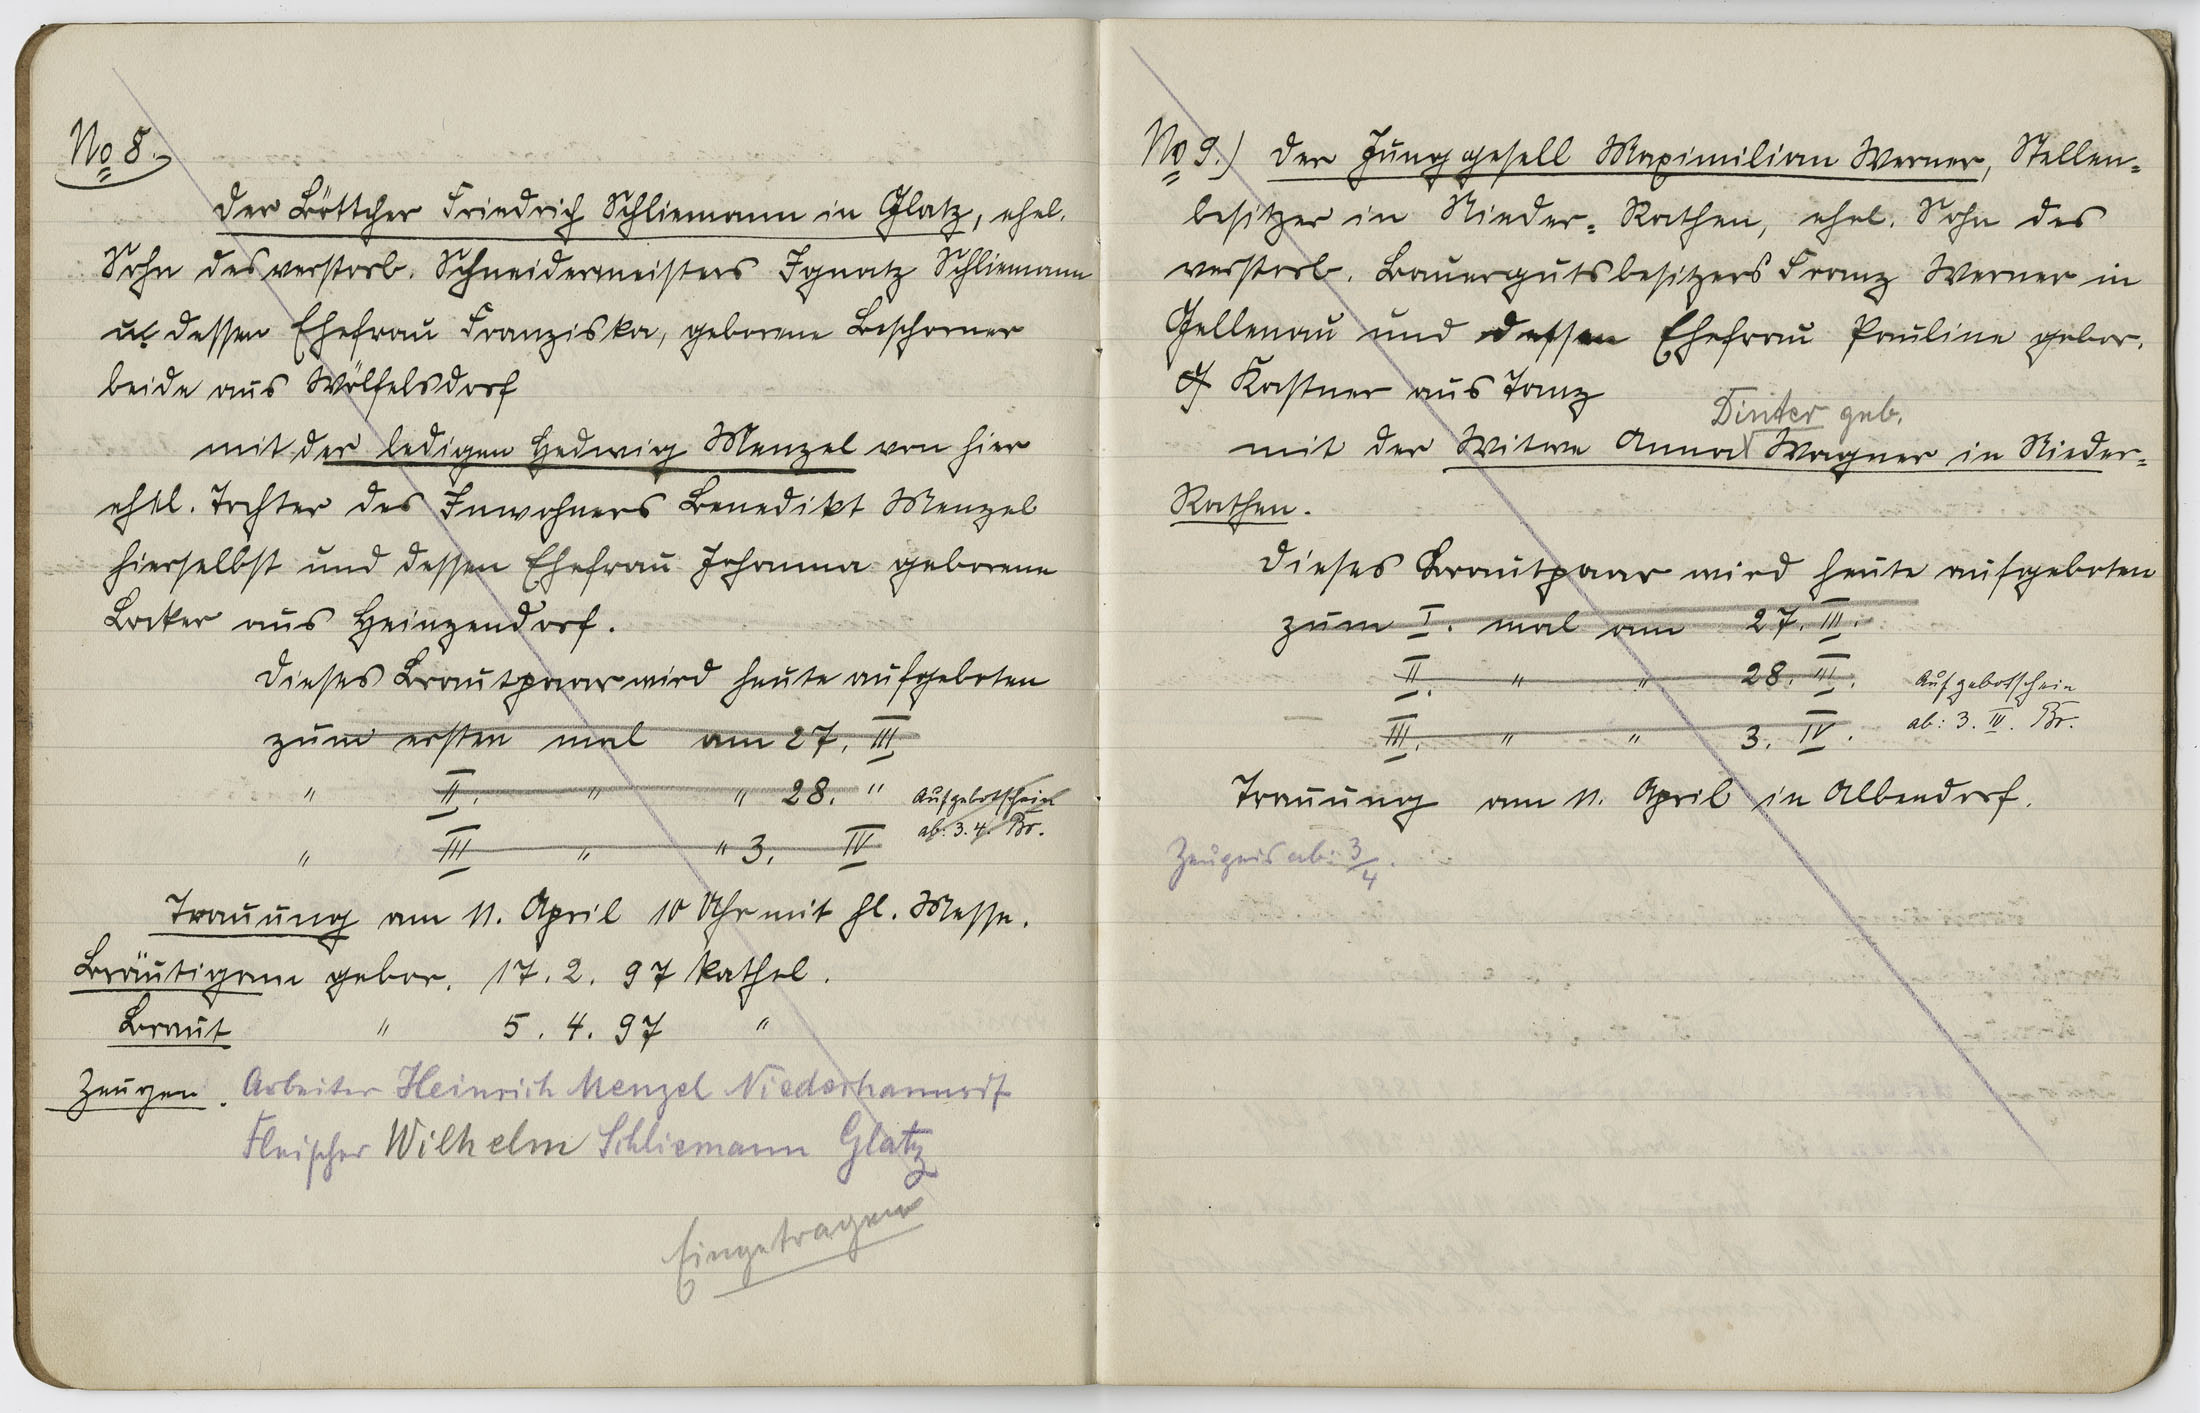 No 8.
Der Böttcher Friedrich Schliemann in Glatz, ehel.
Sohn des verstorb. Schneidermeisters Ignatz Schliemann
u. dessen Ehefrau Franziska, geborene Beschorner
beide aus Wölfelsdorf
mit der ledigen Hedwig Menzel von hier
ehel. Tochter des Inwohners Benedikt Menzel
hierselbst und dessen Ehefrau Johanna geborene
Locker aus Heinzendorf.
Dieses Brautpaar wird heute aufgeboten
zum ersten mal am 27. III
" II. " " 28. "
Aufgebotschein
ab: 3.4. Br.
" III " " 3. IV
Trauung am 11. April 10 Uhr mit hl. Messe.
Bräutigam gebor. 17. 2. 97 kathol.
Braut " 5. 4. 97 "
Zeugen. Arbeiter Heinrich Menzel Niederhannsdf
Fleischer Wilhelm Schliemann Glatz
Eingetragen
No 9.) Der Junggesell Maximilian Werner, Stellen=
besitzer in Nieder=Rathen, ehel. Sohn des
verstorb. Bauergutsbesitzers Franz Werner in
Gellenau und dessen Ehefrau Pauline gebor.
Kastner aus Tanz
Dinter geb.
mit der Witwe Anna Wagner in Nieder=
Rathen.
Dieses Brautpaar wird heute aufgeboten
zum I. mal am 27. III.
II. " " 28. III.
Aufgebotschein
ab: 3. IV. Br.
III. " " 3. IV.
Trauung am 11. April in Albendorf.
Zeugnis ab: 3/4.